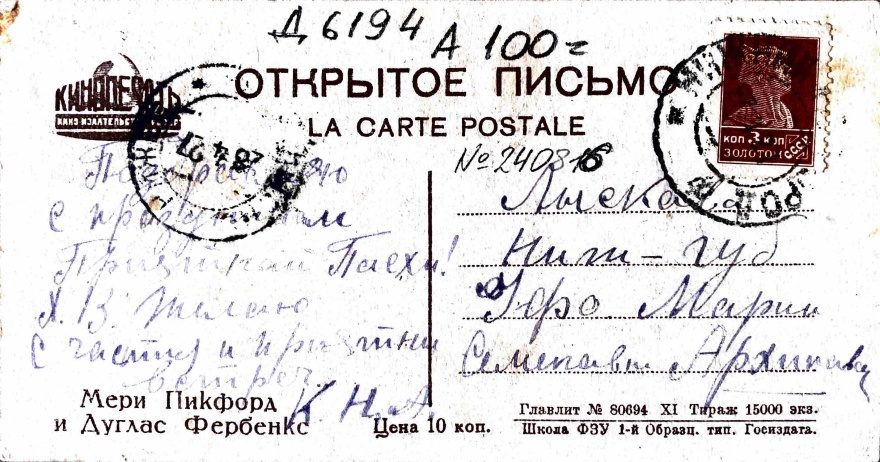 Д 6194 А 100=
КИНОПЕЧАТЬ
КИНО ИЗДАТЕЛЬСТВО
ОТКРЫТОЕ ПИСЬМО
LA CARTE POSTALE
КОП 3 КОП
ЗОЛОТОМ
СССР
28 4 27
№ 240816
Поздравляю
с праздником
Пасхи!
Х. В. Желаю
счастья и приятни
встреч
К. Н. А.
Лысково
Ниж-губ
Марии
Архиповой
Мери Пикфорд
и Дуглас Фербенкс
Цена 10 коп.
Главлит № 80694 XI Тираж 15000 экз.
Школа ФЗУ 1-й Образц. тип. Госиздата.